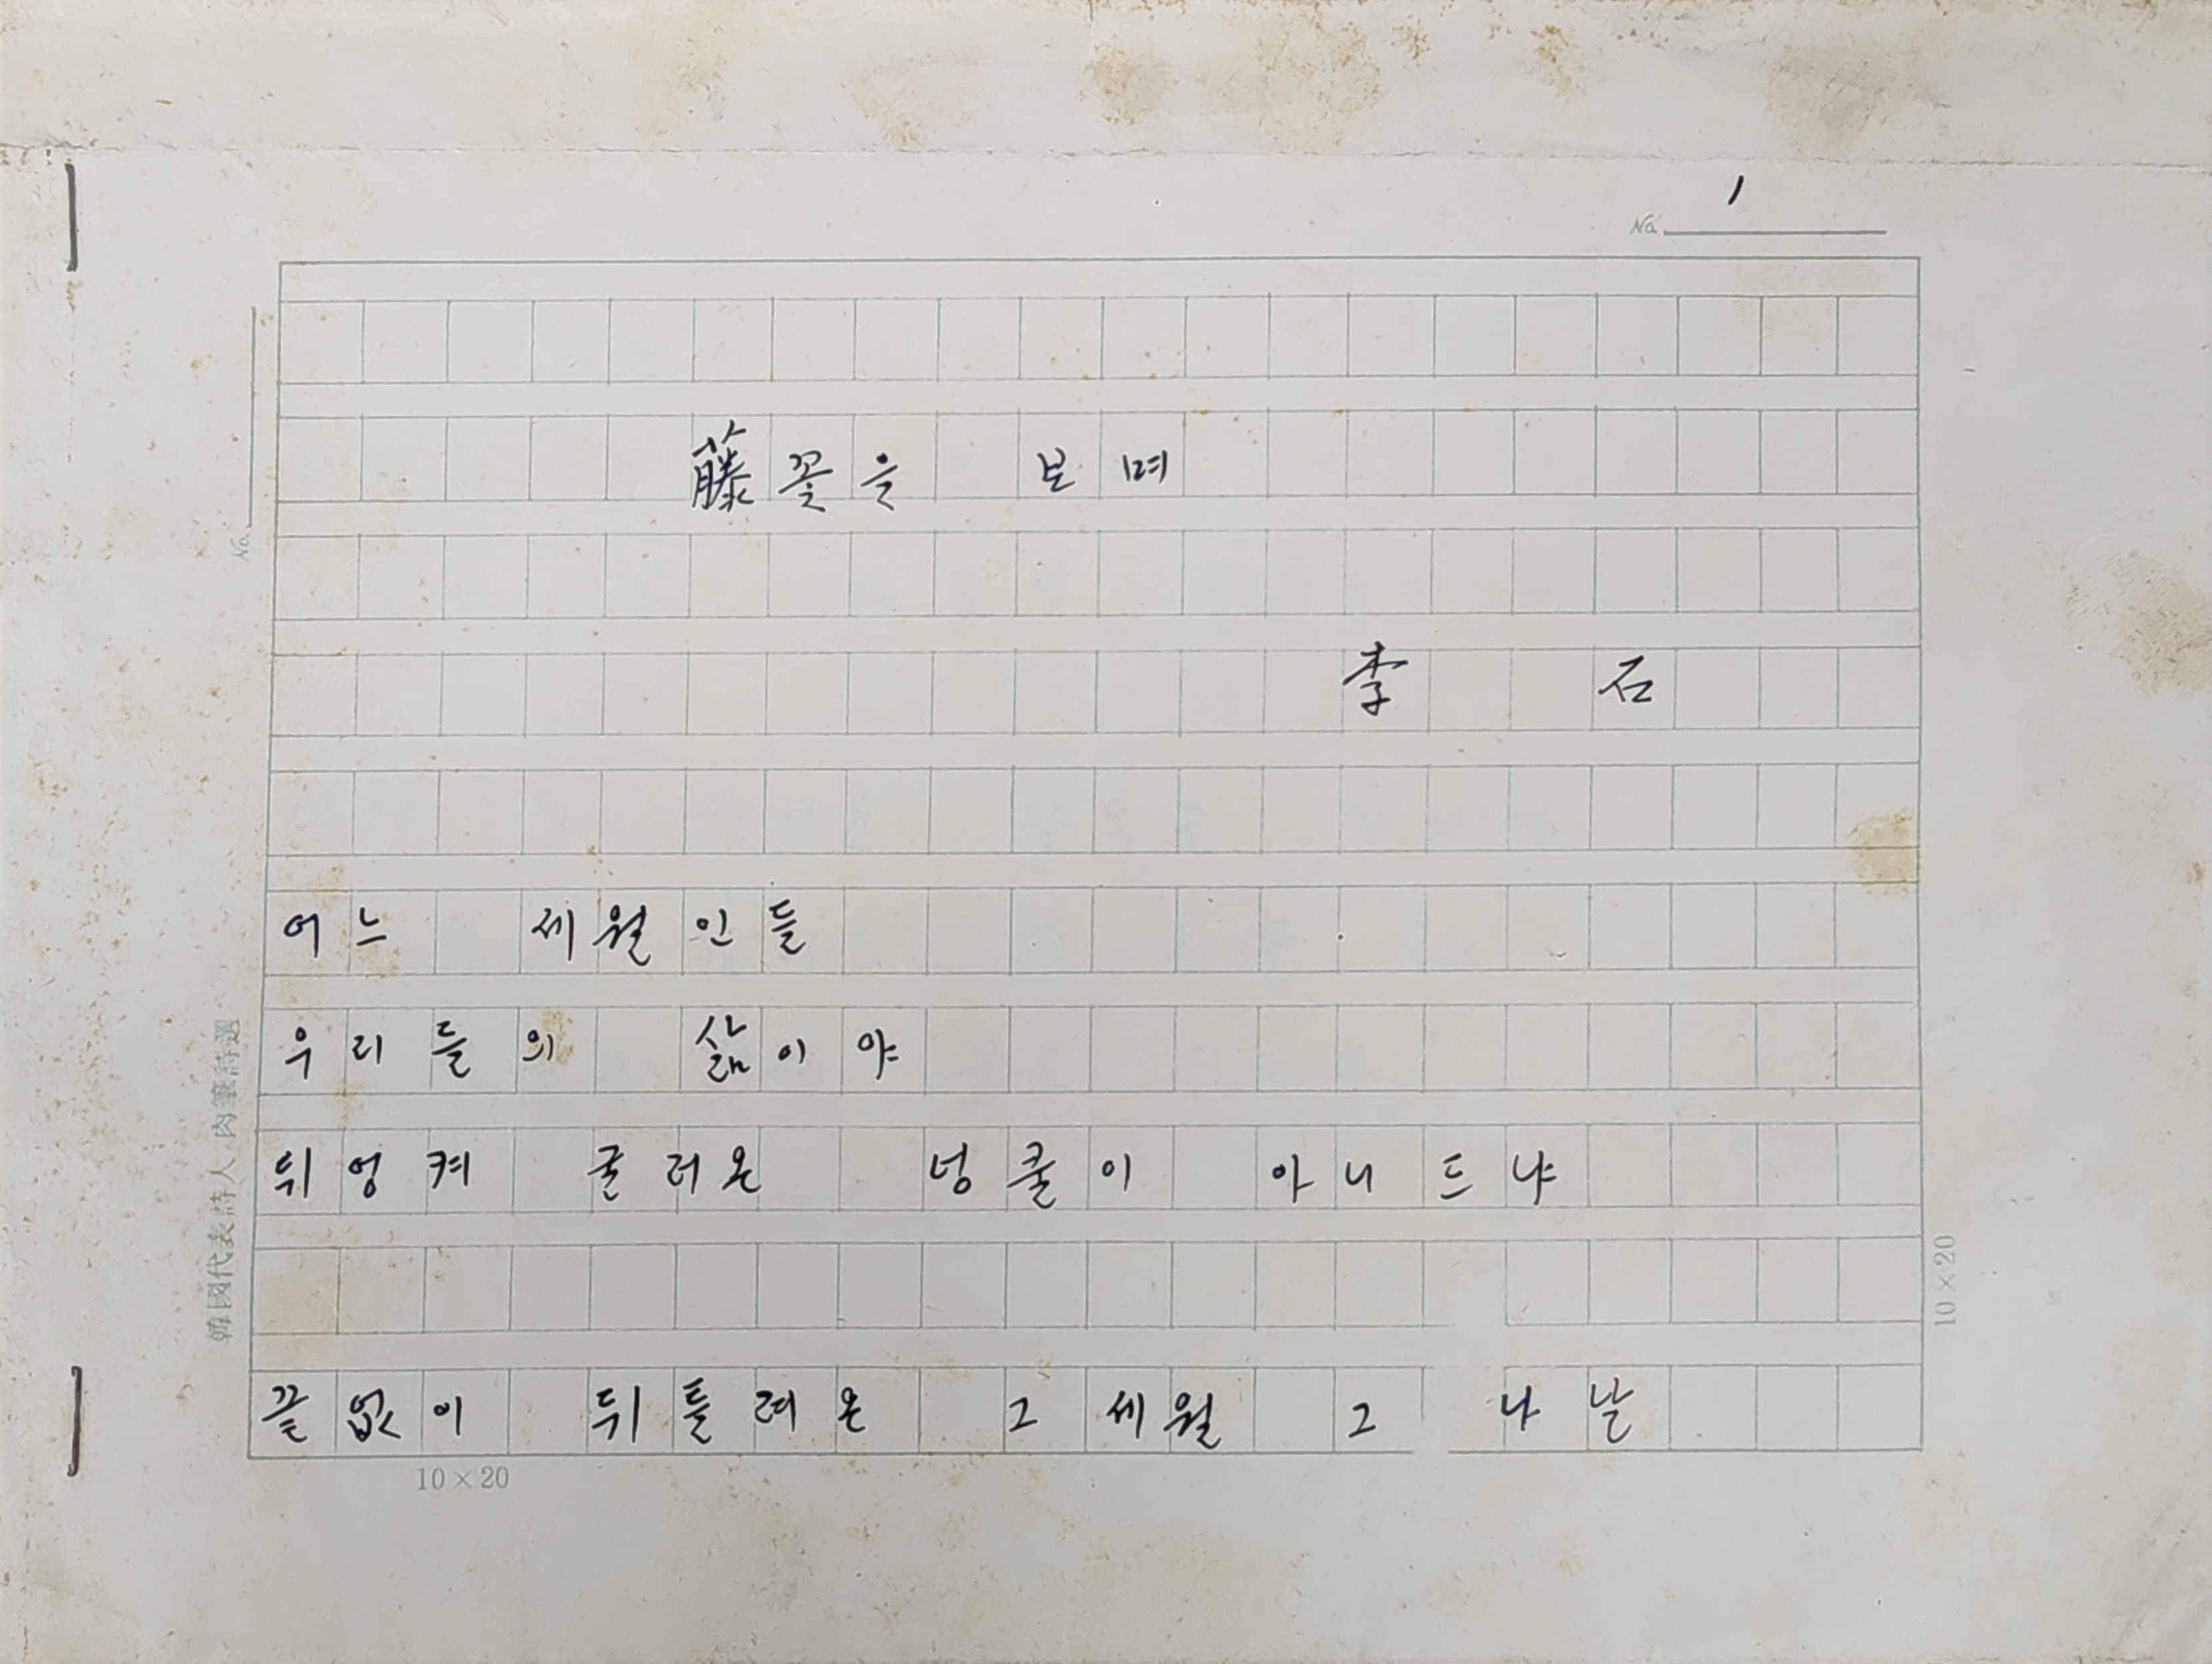 No. 1
藤꽃을 보며
No.
李 石
어느 세월인들
우리들의 삶이야
뒤엉켜 굴러온 넝쿨이 아니드냐
끝없이 뒤틀려온 그 세월 그 나날
韓國代表詩人 肉筆詩選
10×20
10×20